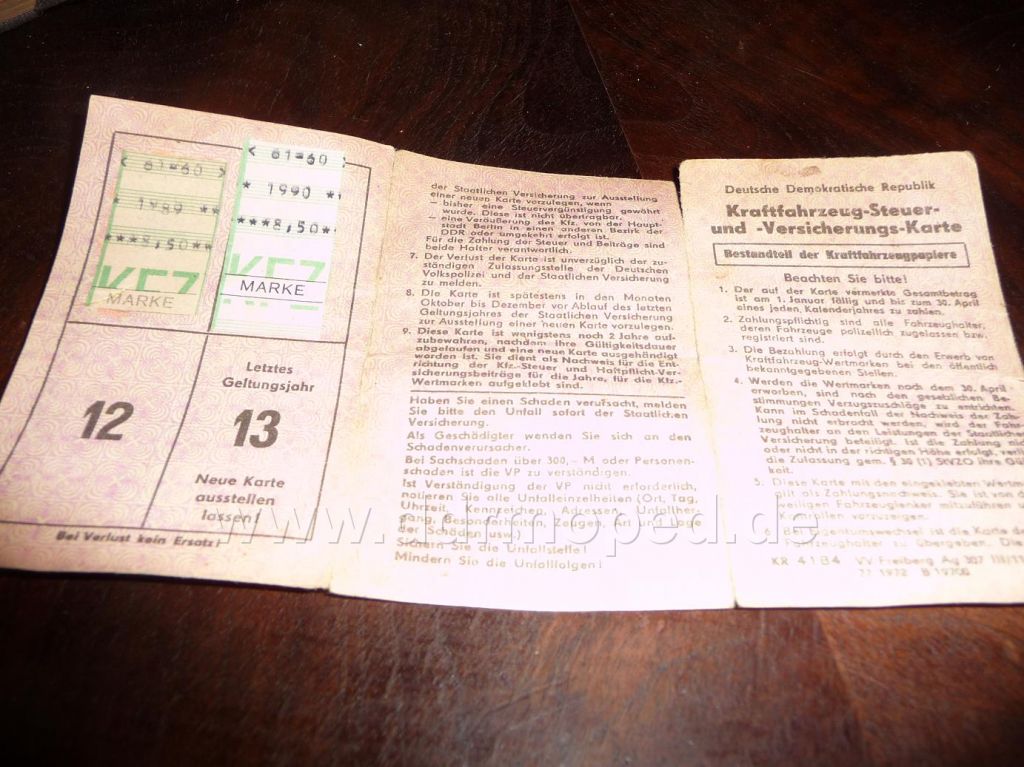 < 61=60
* 1989 **
***8,50**
KFZ
MARKE
< 61=60 >
** 1990 **
***8,50**
KFZ
MARKE
12
Letztes
Geltungsjahr
13
Neue Karte
ausstellen
lassen!
Bei Verlust kein Ersatz!
der Staatlichen Versicherung zur Ausstellung
einer neuen Karte vorzulegen, wenn
– bisher eine Steuervergünstigung gewährt
wurde. Diese ist nicht übertragbar.
– eine Veräußerung des Kfz. von der Haupt-
stadt Berlin in einen anderen Bezirk der
DDR oder umgekehrt erfolgt ist.
Für die Zahlung der Steuer und Beiträge sind
beide Halter verantwortlich.
7. Der Verlust der Karte ist unverzüglich der zu-
ständigen Zulassungsstelle der Deutschen
Volkspolizei und der Staatlichen Versicherung
zu melden.
8. Die Karte ist spätestens in den Monaten
Oktober bis Dezember vor Ablauf des letzten
Geltungsjahres der Staatlichen Versicherung
zur Ausstellung einer neuen Karte vorzulegen.
9. Diese Karte ist wenigstens noch 2 Jahre auf-
zubewahren, nachdem ihre Gültigkeitsdauer
abgelaufen und eine neue Karte ausgehändigt
worden ist. Sie dient als Nachweis für die Ent-
richtung der Kfz.-Steuer und Haftpflicht-Ver-
sicherungsbeiträge für die Jahre, für die Kfz.-
Wertmarken aufgeklebt sind.
Haben Sie einen Schaden verursacht, melden
Sie bitte den Unfall sofort der Staatlichen
Versicherung.
Als Geschädigter wenden Sie sich an den
Schadenverursacher.
Bei Sachschaden über 300,– M oder Personen-
schaden ist die VP zu verständigen.
Ist Verständigung der VP nicht erforderlich,
notieren Sie alle Unfalleinzelheiten (Ort, Tag,
Uhrzeit, Kennzeichen, Adressen, Unfallher-
gang, Besonderheiten, Zeugen, Art und Lage
der Schäden usw.)
Sichern Sie die Unfallstelle!
Mindern Sie die Unfallfolgen!
Deutsche Demokratische Republik
Kraftfahrzeug-Steuer-
und -Versicherungs-Karte
Bestandteil der Kraftfahrzeugpapiere
Beachten Sie bitte!
1. Der auf der Karte vermerkte Gesamtbetrag
ist am 1. Januar fällig und bis zum 30. April
eines jeden Kalenderjahres zu zahlen.
2. Zahlungspflichtig sind alle Fahrzeughalter,
deren Fahrzeuge polizeilich zugelassen bzw.
registriert sind.
3. Die Bezahlung erfolgt durch den Erwerb von
Kraftfahrzeug-Wertmarken bei den öffentlich
bekanntgegebenen Stellen.
4. Werden die Wertmarken nach dem 30. April
erworben, sind nach den gesetzlichen Be-
stimmungen Verzugszuschläge zu entrichten.
Kann im Schadenfall der Nachweis der Zah-
lung nicht erbracht werden, wird der Fahr-
zeughalter an den Leistungen der Staatlichen
Versicherung beteiligt. Ist die Zahlung nicht
oder nicht in der richtigen Höhe erfolgt, verli
die Zulassung gem. § 30 (1) StVZO ihre Gül
keit.
5. Diese Karte mit den eingeklebten Wertmark
gilt als Zahlungsnachweis. Sie ist von
weiligen Fahrzeuglenker mitzuführen u
Kontrollen vorzuzeigen.
6. Bei Eigentumswechsel ist die Karte de
Fahrzeughalter zu übergeben. Die
KR 4184 VV Freiberg Ag 307